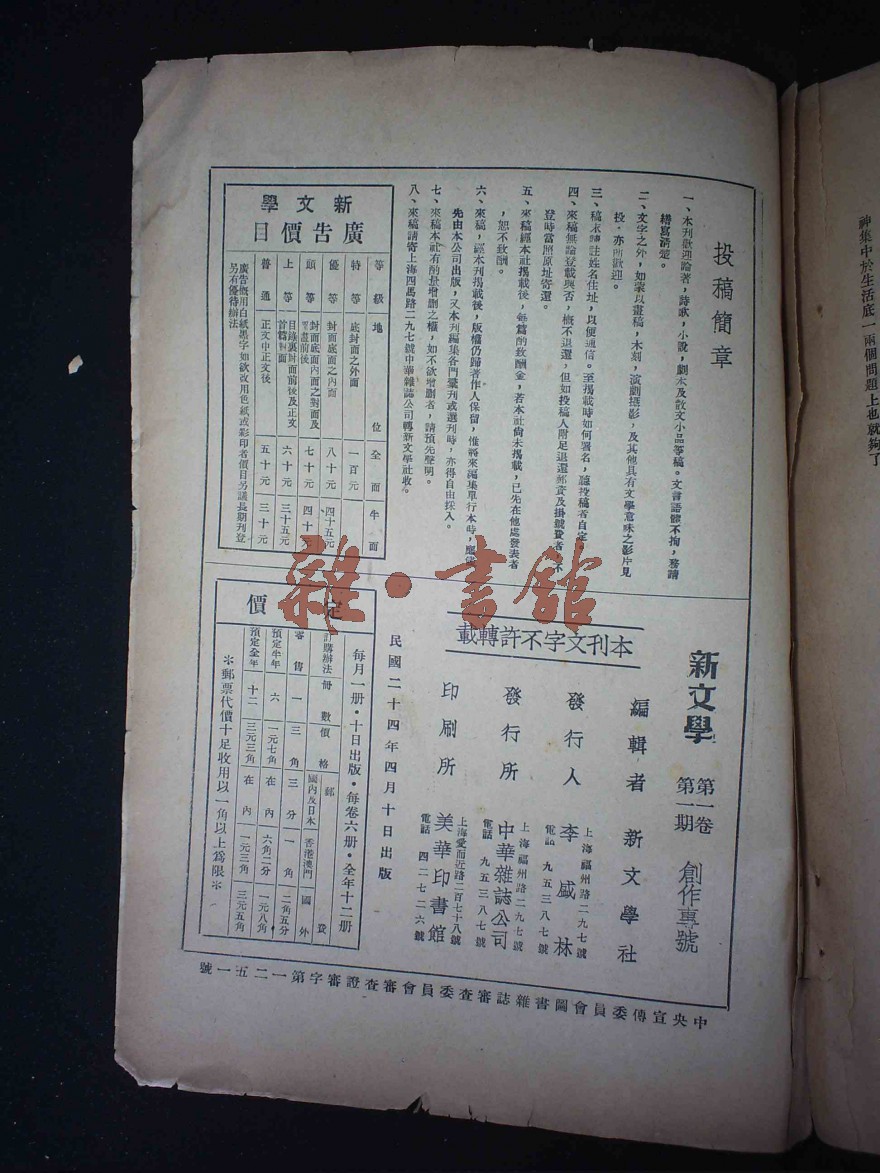 投稿簡章
一、本刊歡迎論著，詩歌，小說，劇本及散文小品等稿。文言語體不拘，務請
繕寫清楚。
二、文字之外，如蒙以畫稿，木刻，演劇攝影，及其他具有文學意味之影片見
投，亦所歡迎。
三、稿末請註姓名住址，以便通信。至揭載時如何署名，聽投稿者自定
四、來稿無論登載與否，概不退還，但如投稿人附足退還郵資及掛號費者
登時當照原址寄還。
五、來稿經本社揭載後，每篇酌致酬金，若本社尚未揭載，已先在他處發表者
，恕不致酬。
六、來稿，經本刊揭載後，版權仍歸著作人保留，惟將來編集單行本時，應
先由本公司出版，又本刊編集各門彙刊或選刊時，亦得自由採入。
七、來稿本社有酌量增刪之權，如不欲增刪者，請預先聲明。
八、來稿請寄上海四馬路二九七號中華雜誌公司轉新文學社收。
新文學
廣告價目
等級 地位 全面 半面
特等 底封面之外面 一百元
優等 封面底面之內面 八十元 四十五元
頭等 封面底面內面之對面及
畫前後 七十元 四十元
上等 目錄裏封面前後及正文
首篇對面 六十元 三十五元
普通 正文中正文後 五十元 三十元
廣告概用白紙黑字如欲改用色紙或彩印者價目另議長期刊登
另有優待辦法
新文學 第一卷 第一期 創作專號
編輯者 新文學社
發行人 李盛林
上海福州路二九七號
電話 九五三八七號
發行所 中華雜誌公司
上海福州路二九七號
電話 九五三八七號
印刷所 美華印書館
上海愛而近路二百七十八號
電話 四二七二六號
本刊文字不許轉載
民國二十四年四月十日出版
定價
每月一册・十日出版・每卷六册・全年十二册
訂購辦法 冊數 價格 郵費
國內及日本 香港澳門 國外
零售 一 三角 三分 一角 二角五分
預定半年 六 一元七角 在內 六角二分 一元八角
預定全年 十二 三元三角 在內 一元三角 三元五角
＊郵票代價十足收用以一角以上為限＊
中央宣傳委員會圖書雜誌審查委員會審查證審字第一二五一號
神集中於生活底一兩個問題上也就夠了
雜・書館